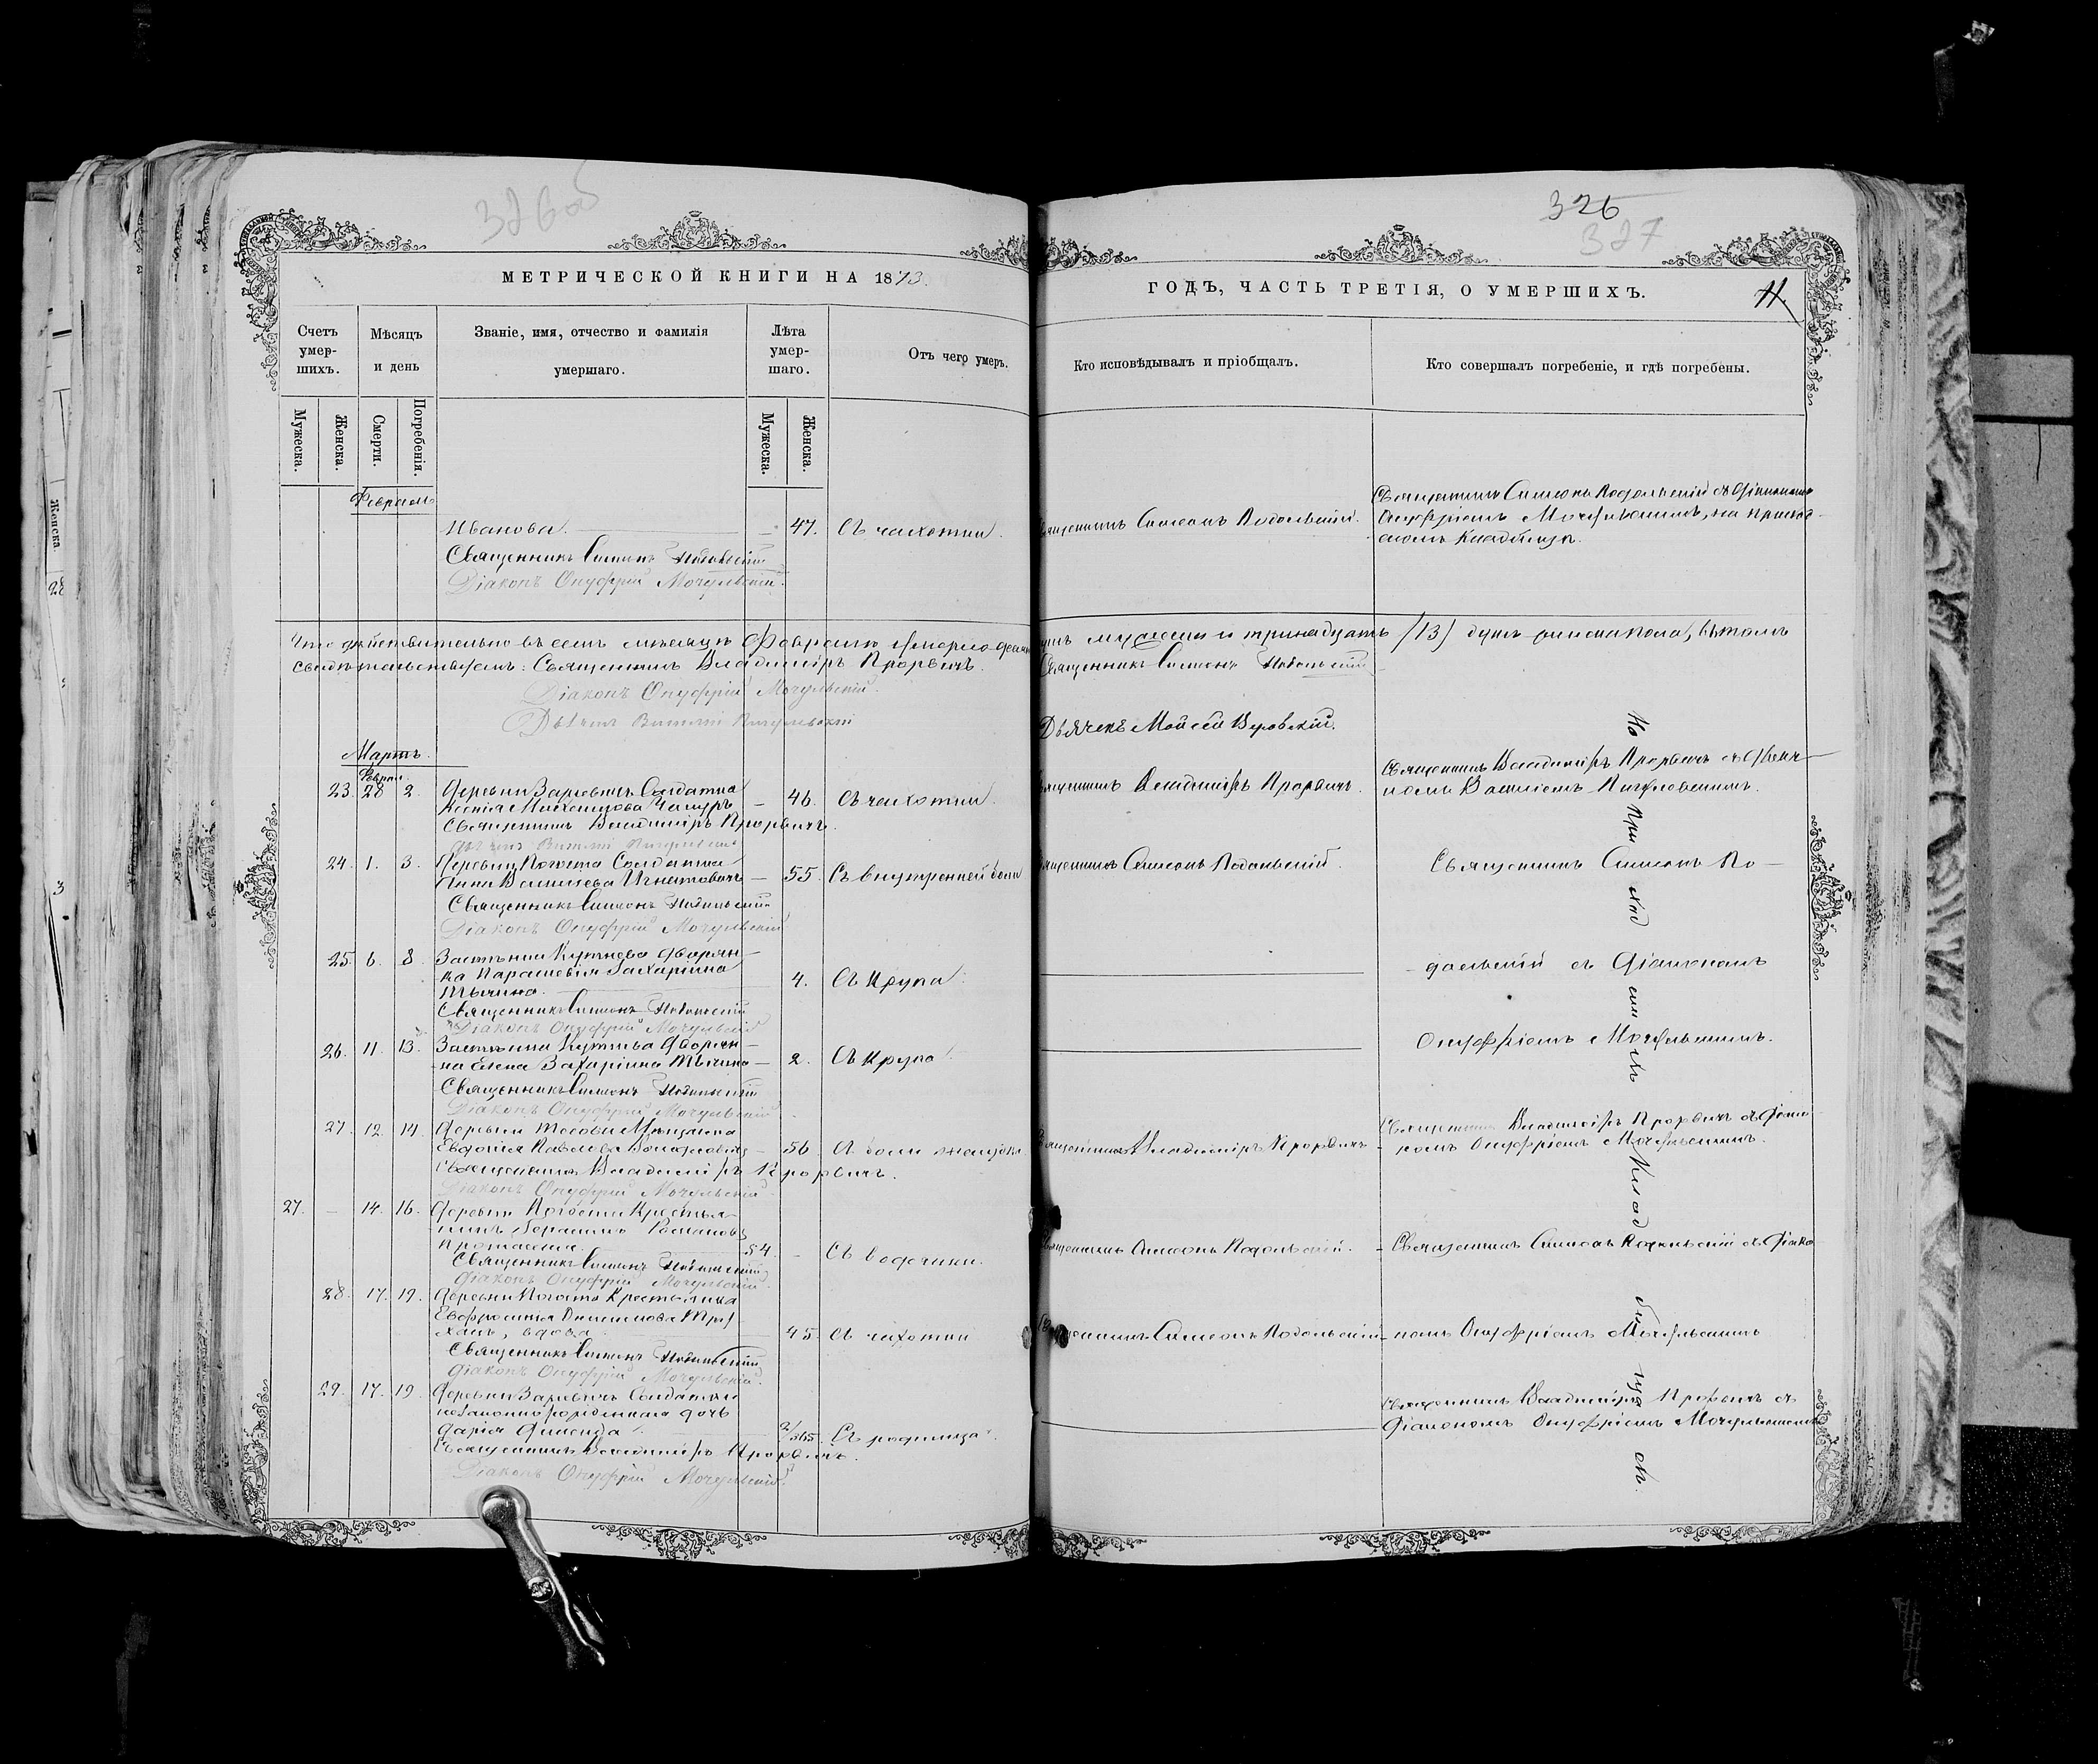 326об
326
327
МЕТРИЧЕСКОЙ КНИГИ НА 1873
ГОДЪ, ЧАСТЬ ТРЕТІЯ, О УМЕРШИХЪ.
11
Счетъ умер-шихъ.
Мѣсяцъ и день
Званіе, имя, отчество и фамилія умершаго.
Лѣта умер-шаго.
Отъ чего умеръ.
Кто исповѣдывалъ и пріобщалъ.
Кто совершалъ погребеніе, и гдѣ погребены.
Мужеска.
Женска.
Смерти.
Погребенія.
Мужеска.
Женска.
Февраль
Иванова. — 47. Съ чахотки.
Священникъ Симеонъ Подольскій.
Священникъ Симеонъ Подольскій съ Діакономъ
Онуфріемъ Мочульскимъ, на приход-
скомъ кладбищѣ.
Священникъ Симеонъ Подольскій
Діаконъ Онуфрій Мочульскій.
Что дѣйствительно въ семъ мѣсяцѣ Февралѣ умерло
мужеска и тринадцать /13/ душъ женска пола, въ томъ
свидѣтельствуемъ: Священникъ Владиміръ Прорвичъ.
Священникъ Симеонъ Подольскій
Діаконъ Онуфрій Мочульскій.
Дьячекъ Мойсей Веровскій.
Мартъ.
Февра.
23. 28 2. Деревни Заревичъ Солдатка
Ксенія — 46. Съ чахотки.
Священникъ Владиміръ Прорвичъ.
Священникъ Владиміръ Прорвичъ.
24. 1. 3. Солдатка
Анна Васильева Игнатовичъ — 55. Съ внутренней боли
Священникъ Симеонъ Подольскій.
Священникъ Симеонъ По-
Священникъ Симеонъ Подольскій
Діаконъ Онуфрій Мочульскій
25. 6. 8. Застѣнка Кутнева дворян-
ка Параскевія Захаріина
4. Съ Крупа
дольскій съ Діакономъ
Священникъ Симеонъ Подольскій
Діаконъ Онуфрій Мочульскій
26. 11. 13. Застѣнка Кутнева Дворян-
ка Елена Захаріина — 2. Съ Крупа
Онуфріемъ Мочульскимъ.
Священникъ Симеонъ Подольскій
Діаконъ Онуфрій Мочульскій
27. 12. 14. Деревни
Евдокія Павлова — 56. Съ боли желудка
Священникъ Владиміръ Прорвичъ
Священникъ Владиміръ Прорвичъ съ Діако-
номъ Онуфріемъ Мочульскимъ.
Священникъ Владиміръ Прорвичъ.
Діаконъ Онуфрій Мочульскій.
27. — 14. 16. Деревни Крестья-
нинъ Герасимъ Романовъ
54. — Съ водянки.
Священникъ Симеонъ Подольскій.
Священникъ Симеонъ Подольскій съ Діако-
Священникъ Симеонъ Подольскій
Діаконъ Онуфрій Мочульскій.
28. 17. 19. Деревни Крестьянка
Евфросинія
вдова 45. Съ чахотки
Священникъ Симеонъ Подольскій
номъ Онуфріемъ Мочульскимъ
Священникъ Симеонъ Подольскій
Діаконъ Онуфрій Мочульскій.
29. 17. 19. Деревни Заревичъ Солдатки
незаконнорожденная дочь
Дарія 2/365. Съ родимца.
Священникъ Владиміръ Прорвичъ съ
Діакономъ Онуфріемъ Мочульскимъ
Священникъ Владиміръ Прорвичъ.
Діаконъ Онуфрій Мочульскій.
На при ход скомъ клад би щѣ.